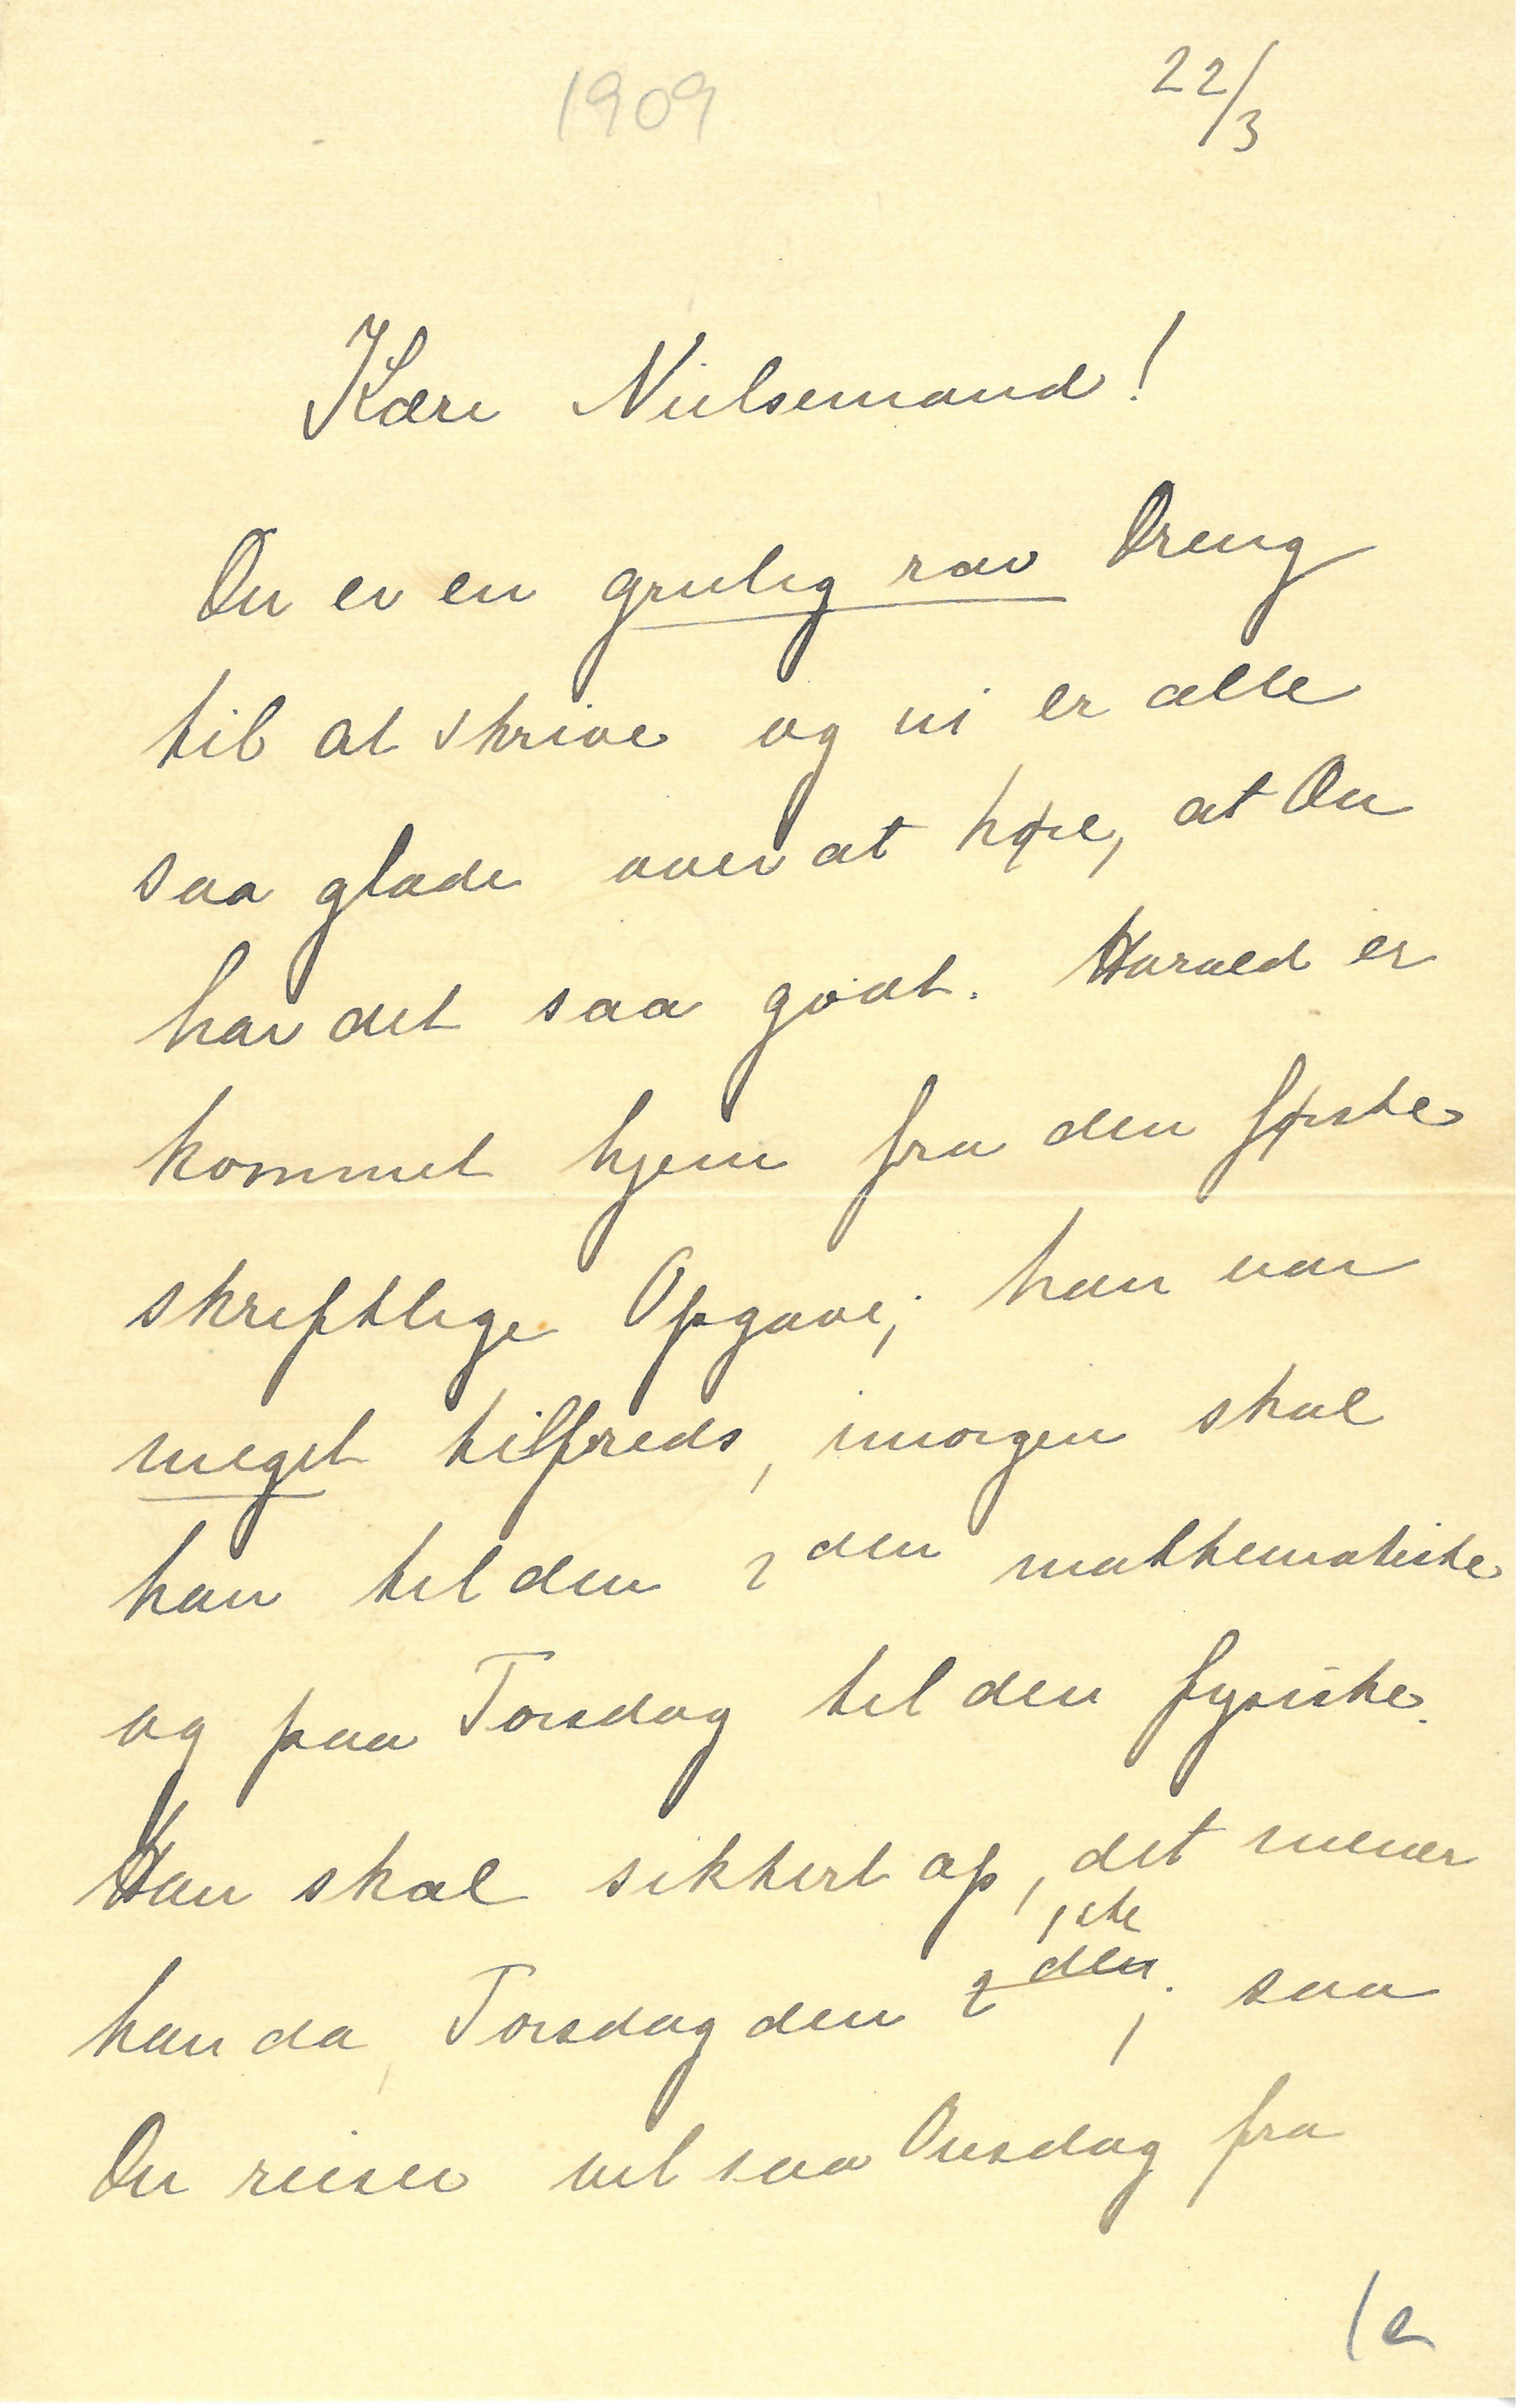 1909
22/3
Kære Nielsemand!
Du er en grulig rar Dreng
til at skrive og vi er alle
saa glade over at høre, at Du
har det saa godt. Harald er
kommet hjem fra den første
skriftlige Opgave; han var
meget tilfreds, imorgen skal
han til den 2den mathematiske
og paa Torsdag til den fysiske.
Han skal sikkert op, det mener
1ste
han da, Torsdag den 2den; saa
Du reiser vel saa Onsdag fra